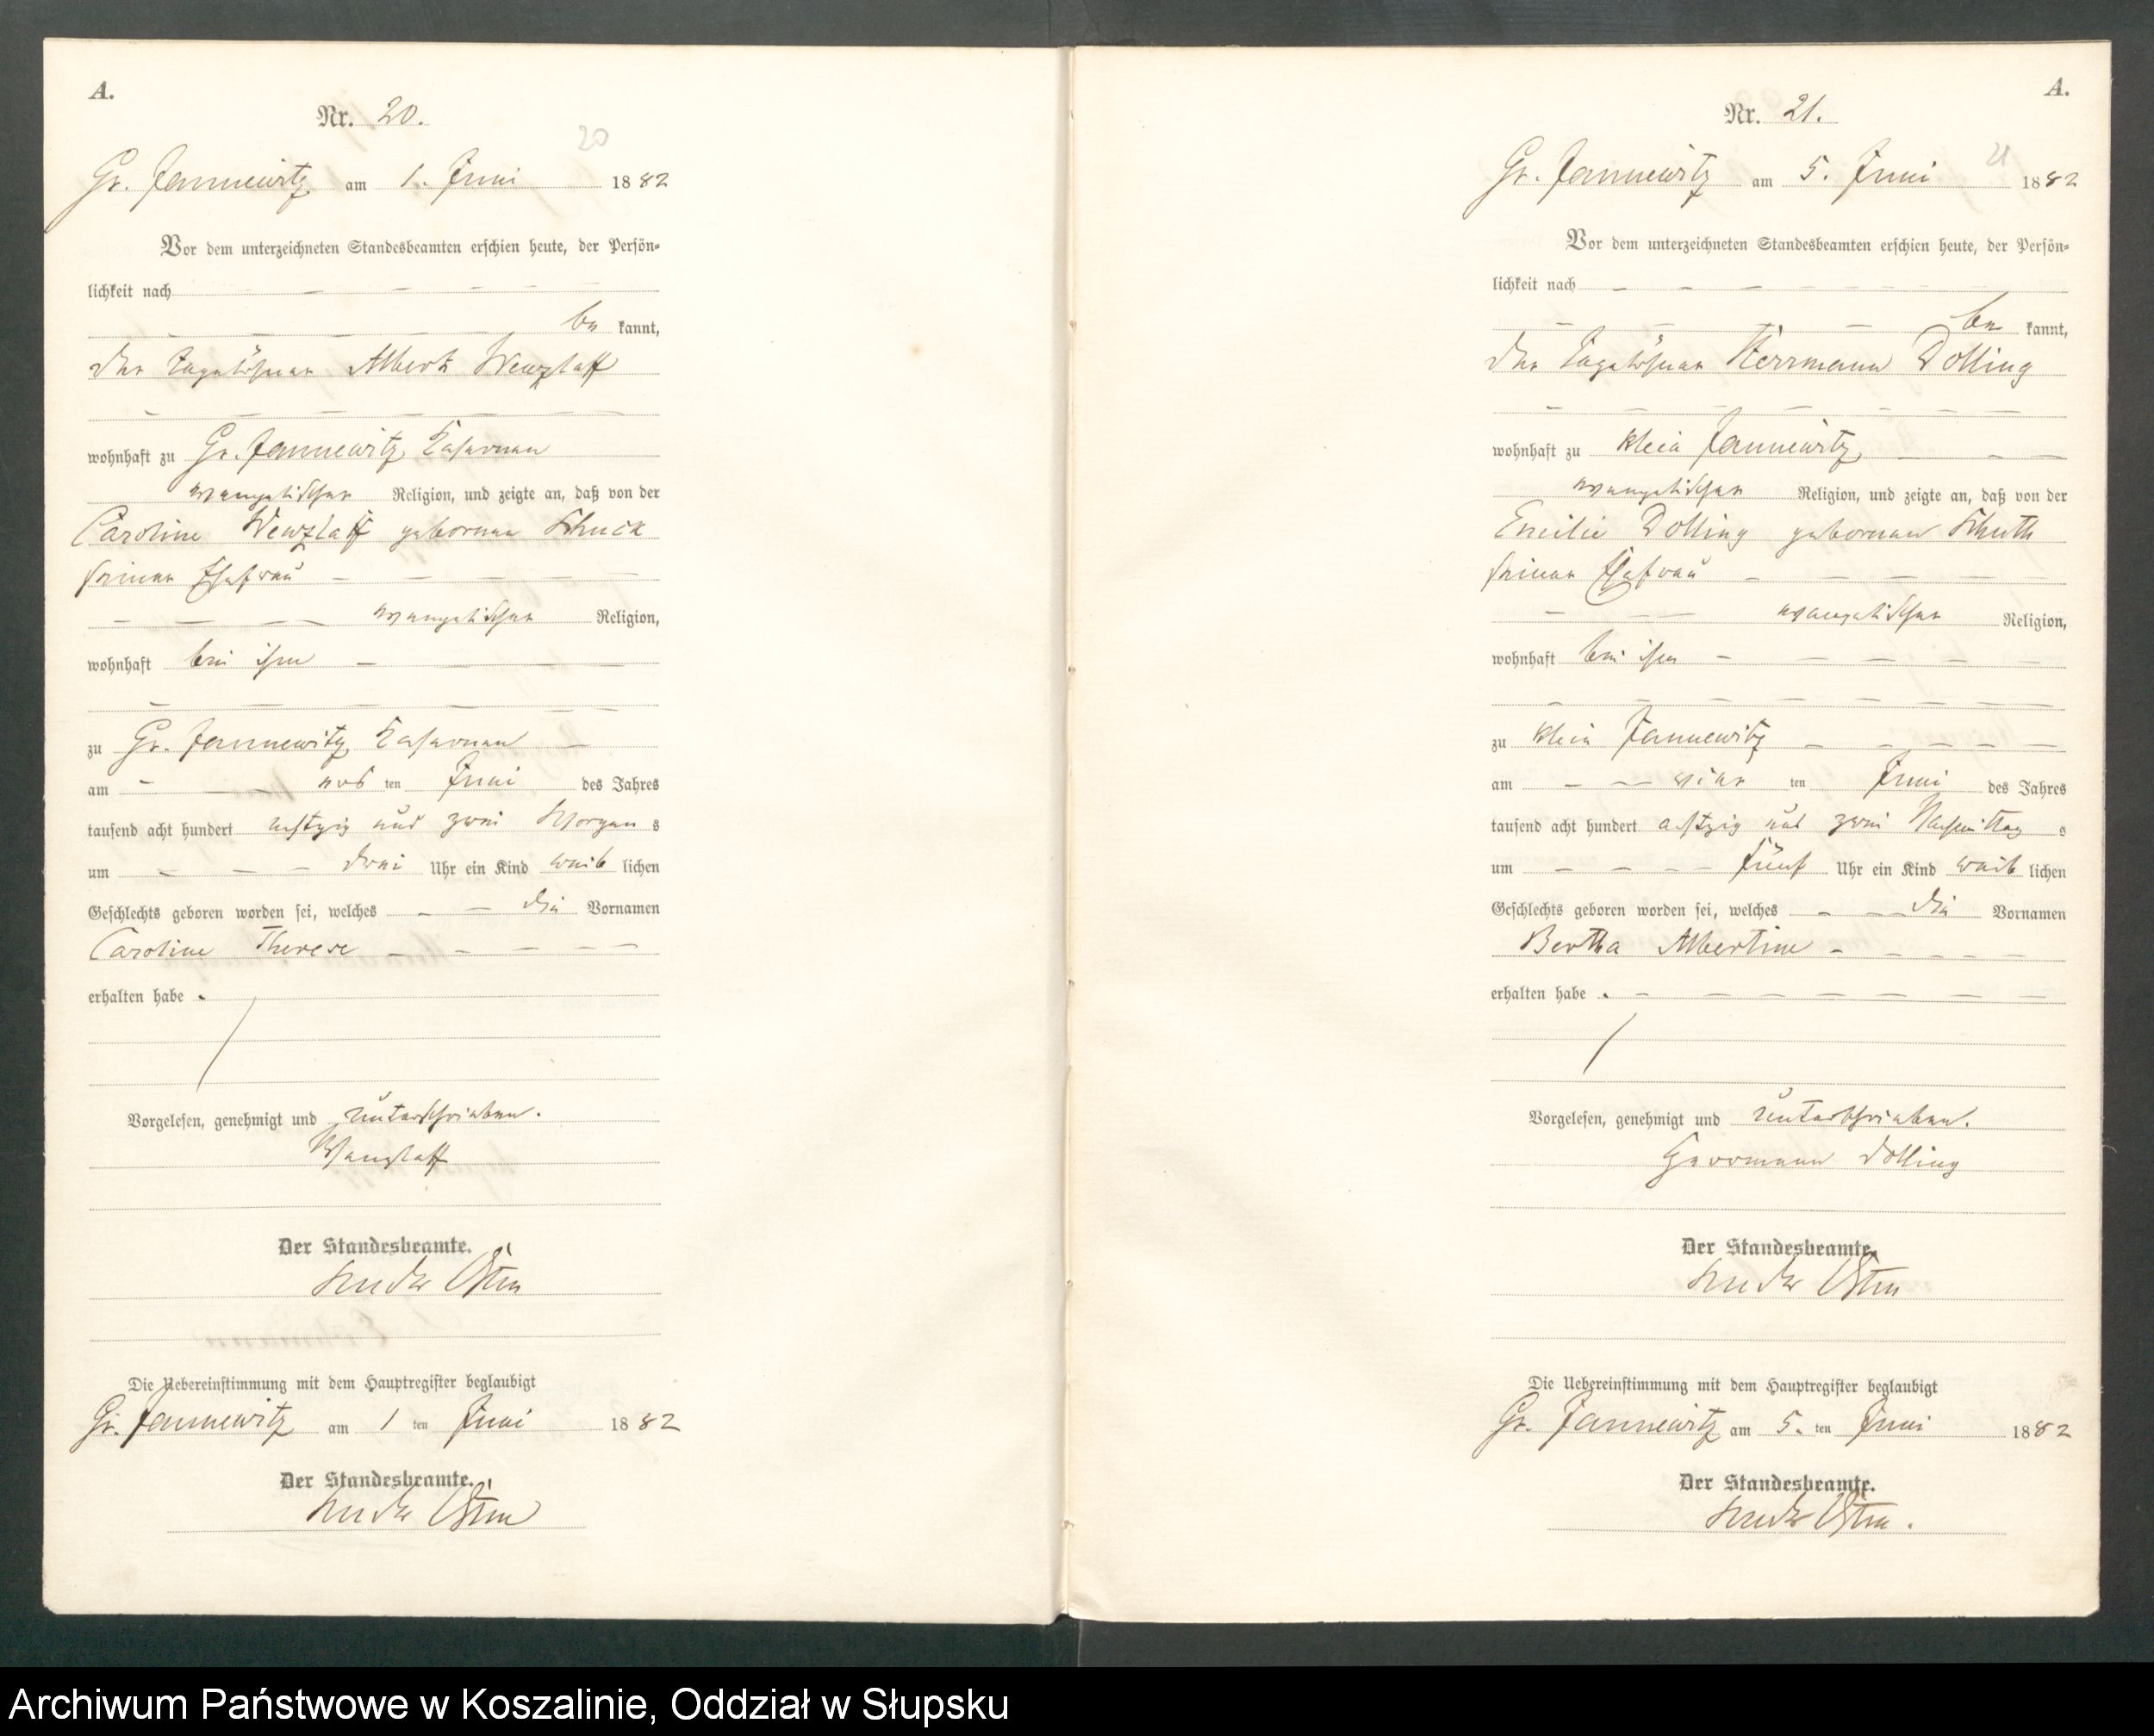 A.
Nr. 20.
20
Gr. Jannewitz am 1. Juni 1882
Vor dem unterzeichneten Standesbeamten erschien heute, der Persön-
lichkeit nach
be kannt,
der Tagelöhner Albert Wenzlaff
wohnhaft zu Gr. Jannewitz,
evangelischer Religion, und zeigte an, daß von der
Caroline Wenzlaff geborenen Schuck
seiner Ehefrau
evangelischer Religion,
wohnhaft bei ihm
zu Gr. Jannewitz,
am ersten Juni des Jahres
tausend acht hundert achtzig und zwei Morgens
um drei Uhr ein Kind weiblichen
Geschlechts geboren worden sei, welches die Vornamen
Caroline Therese
erhalten habe.
Vorgelesen, genehmigt und unterschrieben.
Wenzlaff
Der Standesbeamte.
Osten
Die Uebereinstimmung mit dem Hauptregister beglaubigt
Gr. Jannewitz am 1 ten Juni 1882
Der Standesbeamte.
Osten
A.
Nr. 21.
21
Gr. Jannewitz am 5. Juni 1882
Vor dem unterzeichneten Standesbeamten erschien heute, der Persön-
lichkeit nach
be kannt,
der Tagelöhner Herrmann Dolling
wohnhaft zu Klein Jannewitz,
evangelischer Religion, und zeigte an, daß von der
Emilie Dolling geborenen Schuth
seiner Ehefrau
evangelischer Religion,
wohnhaft bei ihm
zu Klein Jannewitz
am vier ten Juni des Jahres
tausend acht hundert achtzig und zwei Nachmittags
um fünf Uhr ein Kind weiblichen
Geschlechts geboren worden sei, welches die Vornamen
Bertha Albertine
erhalten habe.
Vorgelesen, genehmigt und unterschrieben.
Herrmann Dolling
Der Standesbeamte.
Osten
Die Uebereinstimmung mit dem Hauptregister beglaubigt
Gr. Jannewitz am 5. ten Juni 1882
Der Standesbeamte.
Osten.
Archiwum Państwowe w Koszalinie, Oddział w Słupsku